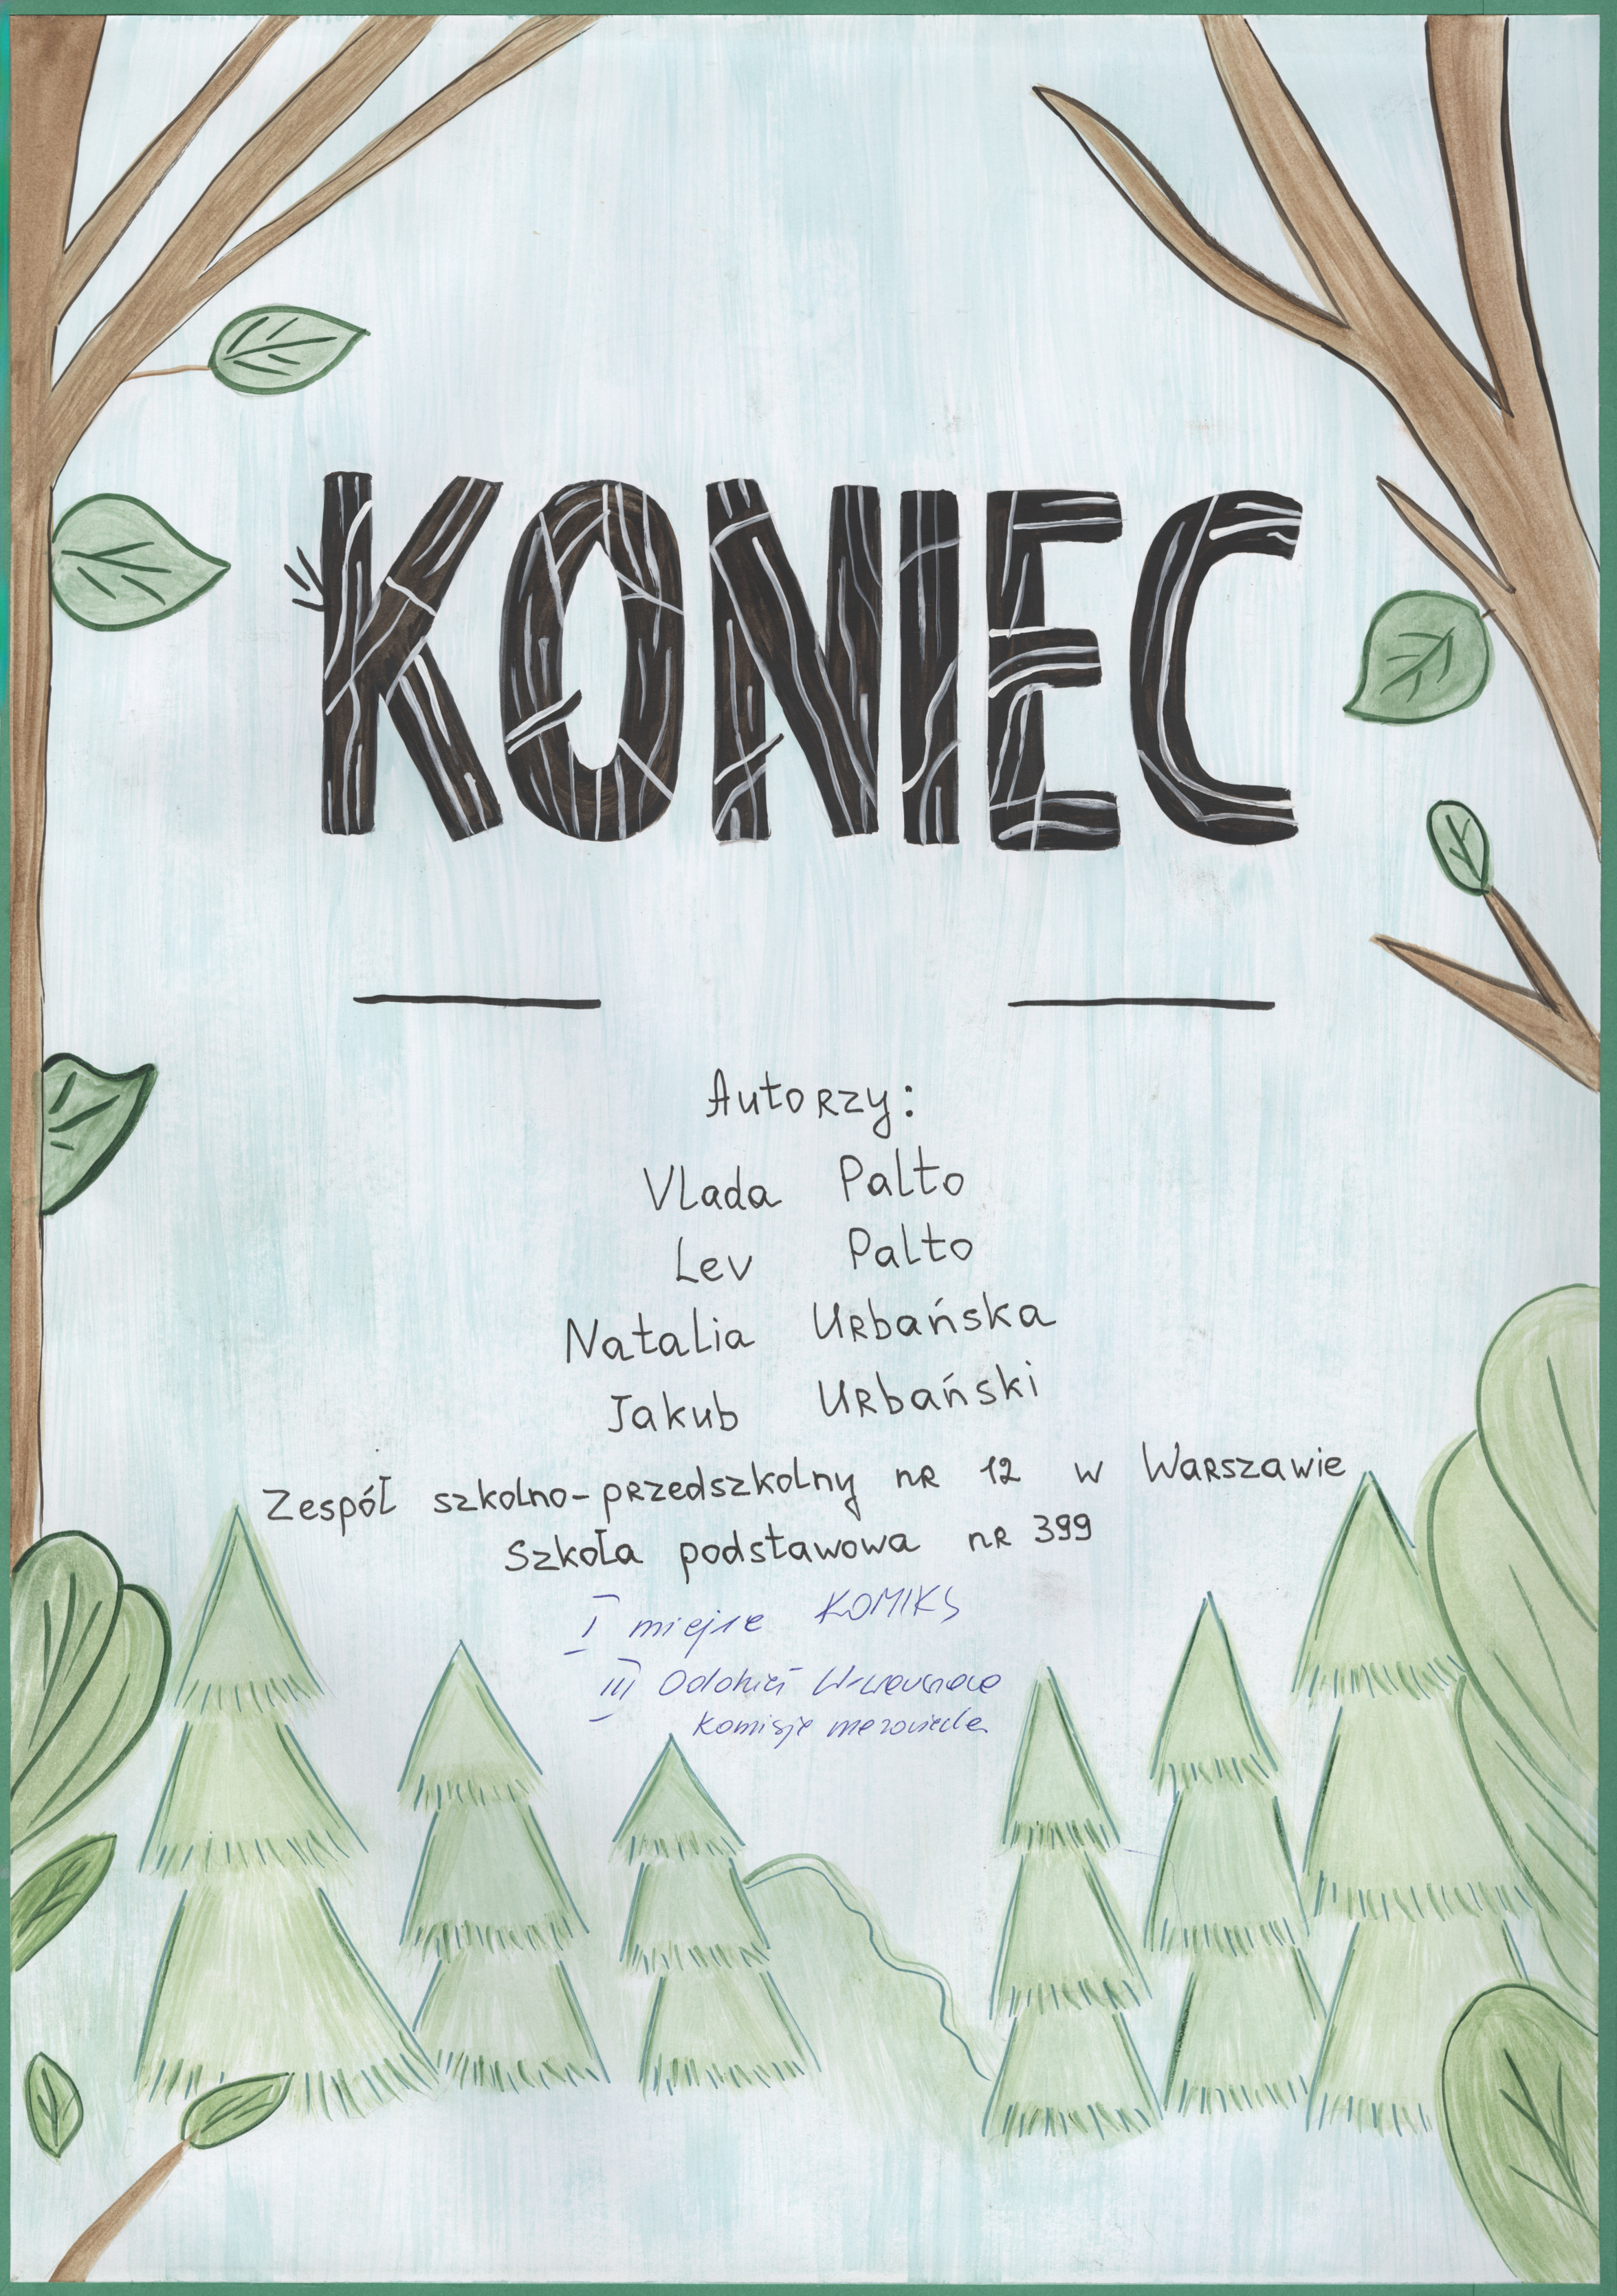 KONIEC
Autorzy:
Vlada Palto
Lev Palto
Natalia Urbańska
Jakub Urbański
Zespół szkolno-przedszkolny nr 12 w Warszawie
Szkoła podstawowa nr 399
I miejsce KOMIKS
III